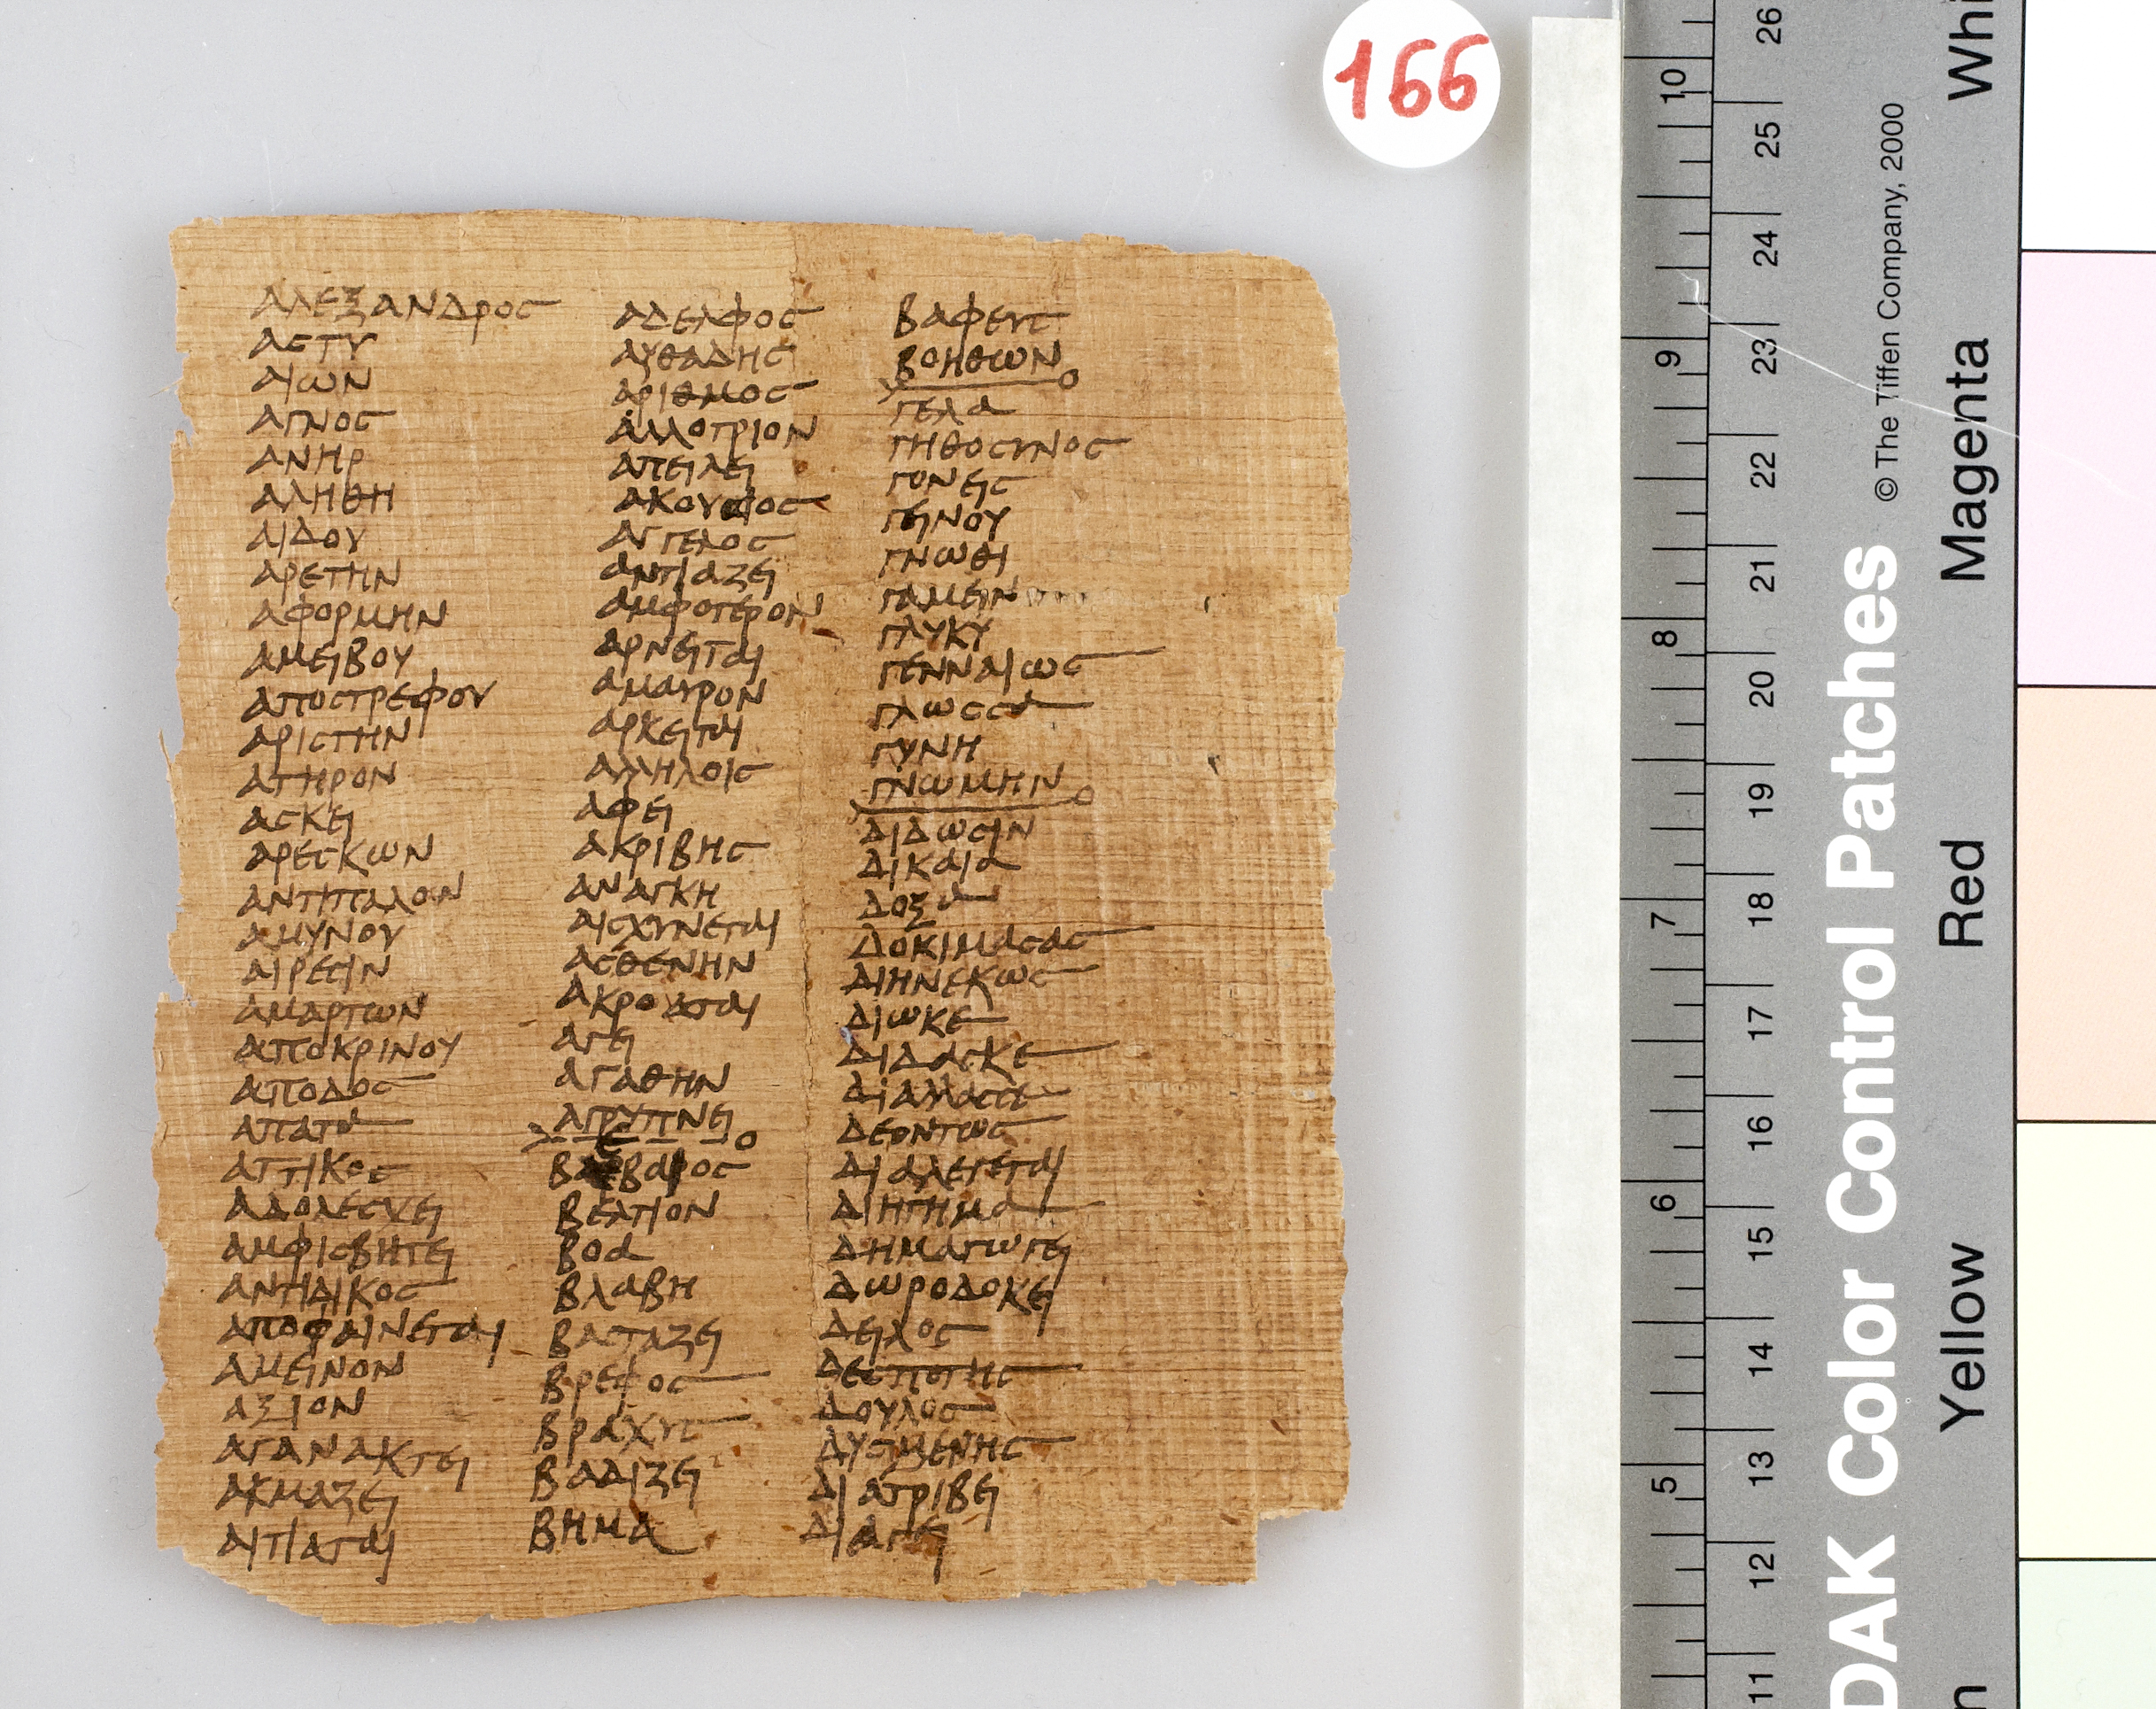 ΑΛΕΞΑΝΔΡΟC
ΑCΤΥ
ΑΙωΝ
ΑΓΝΟC
ΑΝΗΡ
ΑΛΗΘΗ
ΑΙΔΟΥ
ΑΡΕΤΗΝ
ΑΦΟΡΜΗΝ
ΑΜΕΙΒΟΥ
ΑΠΟCΤΡΕΦΟΥ
ΑΡΙCΤΗΝ
ΑΓΗΡΟΝ
ΑCΚΕΙ
ΑΡΕCΚωΝ
ΑΝΤΙΠΑΛΟΝ
ΑΜΥΝΟΥ
ΑΙΡΕCΙΝ
ΑΜΑΡΤωΝ
ΑΠΟΚΡΙΝΟΥ
ΑΠΟΔΟC
ΑΠΑΤΑ
ΑΤΤΙΚΟC
ΑΔΟΛΕCΧΕΙ
ΑΜΦΙCΒΗΤΕΙ
ΑΝΤΙΔΙΚΟC
ΑΠΟΦΑΙΝΕΤΑΙ
ΑΜΕΙΝΟΝ
ΑΞΙΟΝ
ΑΓΑΝΑΚΤΕΙ
ΑΚΜΑΖΕΙ
ΑΙΤΙΑΤΑΙ
ΑΔΕΛΦΟC
ΑΥΘΑΔΗC
ΑΡΙΘΜΟC
ΑΛΛΟΤΡΙΟΝ
ΑΠΕΙΛΕΙ
ΑΚΟΥCΙΟC
ΑΓΓΕΛΟC
ΑΝΤΙΑΖΕΙ
ΑΜΦΟΤΕΡΟΝ
ΑΡΝΕΙΤΑΙ
ΑΜΑΥΡΟΝ
ΑΡΚΕΙΤΑΙ
ΑΛΛΗΛΟΙC
ΑΦΕΙ
ΑΚΡΙΒΗC
ΑΝΑΓΚΗ
ΑΙCΧΥΝΕΤΑΙ
ΑCΘΕΝΗΝ
ΑΚΡΟΑΤΑΙ
ΑΓΕΙ
ΑΓΑΘΗΝ
ΑΓΡΥΠΝΕΙ
ΒΑΡΒΑΡΟC
ΒΕΛΤΙΟΝ
ΒΟΑ
ΒΛΑΒΗ
ΒΑCΤΑΖΕΙ
ΒΡΕΦΟC
ΒΡΑΧΥC
ΒΑΔΙΖΕΙ
ΒΗΜΑ
ΒΑΦΕΥC
ΒΟΗΘωΝ
ΓΕΛΑ
ΓΗΘΟCΥΝΟC
ΓΟΝΕΙC
ΓΕΙΝΟΥ
ΓΝωΘΙ
ΓΑΜΕΙΝ
ΓΛΥΚΥ
ΓΕΝΝΑΙωC
ΓΛωCCΑ
ΓΥΝΗ
ΓΝωΜΗΝ
ΔΙΔωCΙΝ
ΔΙΚΑΙΑ
ΔΟΞΑ
ΔΟΚΙΜΑCΑC
ΔΙΗΝΕΚωC
ΔΙωΚΕ
ΔΙΔΑCΚΕ
ΔΙΑΛΛΑCCΕ
ΔΕΟΝΤωC
ΔΙΑΛΕΓΕΤΑΙ
ΔΙΗΓΗΜΑ
ΔΗΜΑΓωΓΕΙ
ΔωΡΟΔΟΚΕΙ
ΔΕΙΛΟC
ΔΕCΠΟΤΗC
ΔΟΥΛΟC
ΔΥCΜΕΝΗC
ΔΙΑΤΡΙΒΕΙ
ΔΙΑΓΕΙ
166
© The Tiffen Company, 2000
DAK Color Control Patches
Whi
Magenta
Red
Yellow
n
10
9
8
7
6
5
26
25
24
23
22
21
20
19
18
17
16
15
14
13
12
11